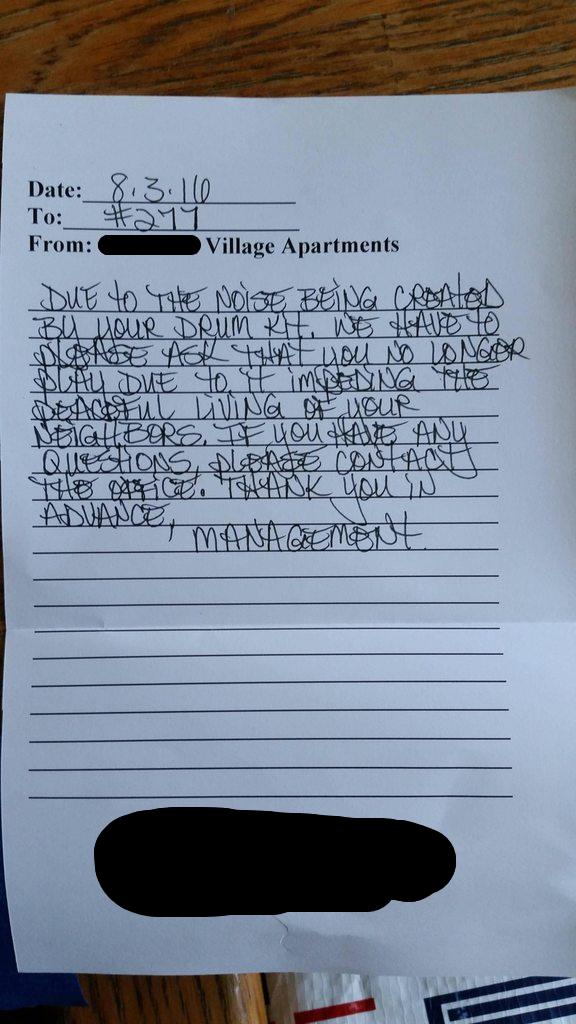 Date: 8.3.16
To: #277
From: Village Apartments
DUE TO THE NOISE BEING CREATED
BY YOUR DRUM KIT, WE HAVE TO
PLEASE ASK THAT YOU NO LONGER
PLAY DUE TO IT IMPEDING THE
PEACEFUL LIVING OF YOUR
NEIGHBORS. IF YOU HAVE ANY
QUESTIONS, PLEASE CONTACT
THE OFFICE. THANK YOU IN
ADVANCE,
MANAGEMENT.